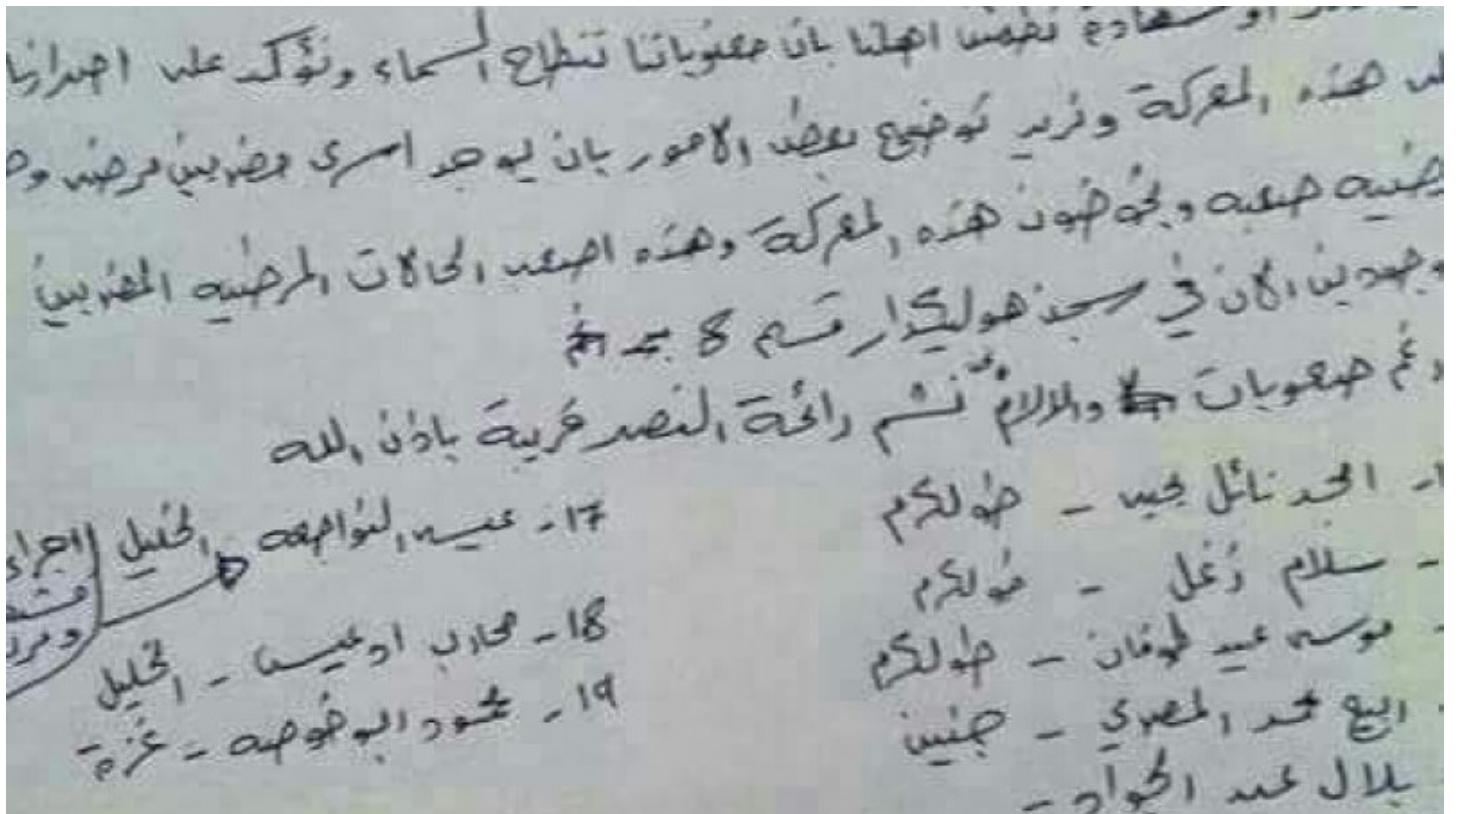 او شهادة نطمئن اهلنا بان معنوياتنا تنطاح السماء ونؤكد على اصرارنا
هذه المعركة ونريد توضيح بعض الامور بان يوجد اسرى مضربين مرضى
صعبه ويخوضون هذه المعركة وهذه اصعب الحالات المرضيه المضربين
الان في سجن هوليكدار قسم 8
رغم صعوبات والالام نشم رائحة النصر قريبة باذن الله
نائل يحيى - طولكرم
- سلام زغل - طولكرم
- موسى عيد طوفان - طولكرم
ربيع محمد المصري - جنين
بلال عبد الجواد -
17- عيسى النواجعه الخليل اجراء
18- محارب ادعيس - الخليل
19- محمود ابو خوصه - غزة